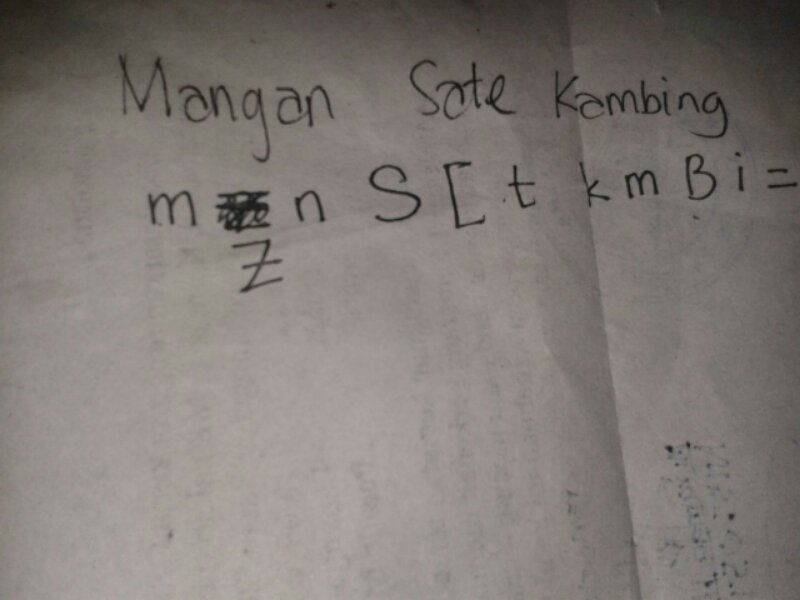 Mangan Sate Kambing
m n S [ t k m B i =
Z